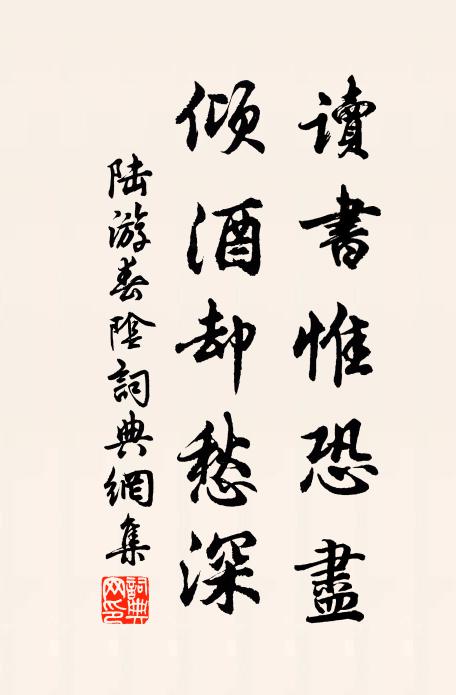 讀書惟恐盡
傾酒却愁深
陸游春陰詞典網集
詞典網印